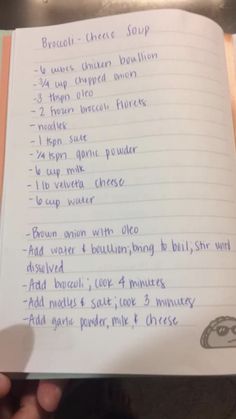 Broccoli - Cheese Soup
- 6 cubes chicken boullion
- 3/4 cup chopped onion
- 3 tbspn oleo
- 2 frozen broccoli florets
- noodles
- 1 tspn salt
- 1/4 tspn garlic powder
- 6 cup milk
- 1 lb velveta cheese
- 6 cup water
- Brown onion with oleo
- Add water & boullion; bring to boil, stir until
dissolved
- Add broccoli; cook 4 minutes
- Add noodles & salt; cook 3 minutes
- Add garlic powder, milk & cheese